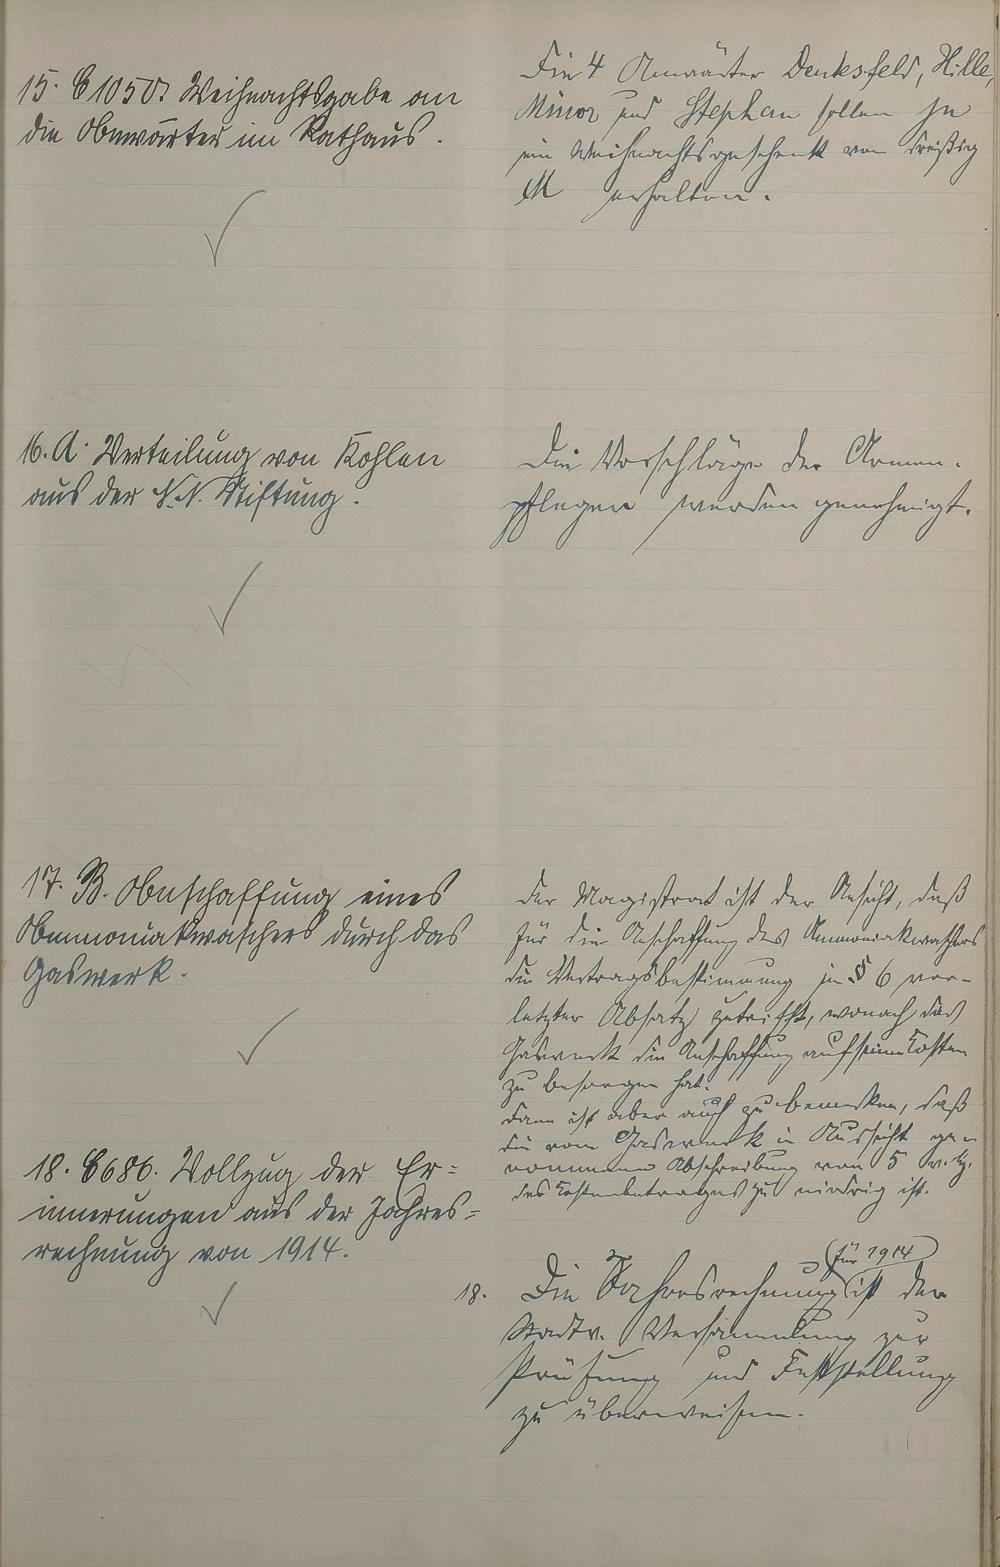 15. C 1050. Weihnachtsgabe an
die Anwärter im Rathaus.
Die 4 Anwärter Denksfeld, Hille,
Minor und Stephan sollen je
ein Weihnachtsgeschenk von dreißig
M erhalten.
16. A. Verteilung von Kohlen
aus der N.N. Stiftung.
Die Vorschläge der Armen-
pfleger werden genehmigt.
17. B. Anschaffung eines
Ammoniakwaschers durch das
Gaswerk.
Der Magistrat ist der Ansicht, daß
für die Anschaffung des Ammoniakwaschers
die Vertragsbestimmung in § 6 vor-
letzter Absatz zutrifft, wonach das
Gaswerk die Anschaffung auf seine Kosten
zu besorgen hat.
Dann ist aber auch zu bemerken, daß
die vom Gaswerk in Aussicht ge-
nommene Abschreibung von 5 v. H.
des Kostenbetrages zu niedrig ist.
18. C 686. Vollzug der Er=
innerungen aus der Jahres=
rechnung von 1914.
18. Die Jahresrechnung (für 1914) ist der
Stadtv. Versammlung zur
Prüfung und Feststellung
zu überweisen.